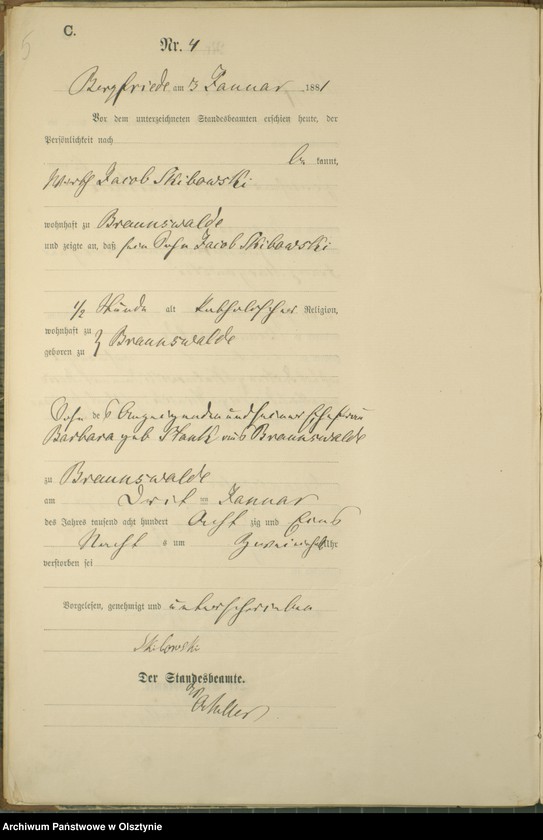 C.
5
Nr. 4
Bergfriede am 3 Januar 1881
Vor dem unterzeichneten Standesbeamten erschien heute, der
Persönlichkeit nach
be kannt,
Wirth Jacob Skibowski
wohnhaft zu Braunswalde
und zeigte an, daß sein Sohn Jacob Skibowski
1/2 Stunde alt katholischer Religion,
wohnhaft zu
geboren zu } Braunswalde
Sohn des Anzeigenden und seiner Ehefrau
Barbara geb aus Braunswalde
zu Braunswalde
am Drit en Januar
des Jahres tausend acht hundert Acht zig und Eins
Nacht s um Uhr
verstorben sei
Vorgelesen, genehmigt und unterschrieben
Skibowski
Der Standesbeamte.
Archiwum Państwowe w Olsztynie